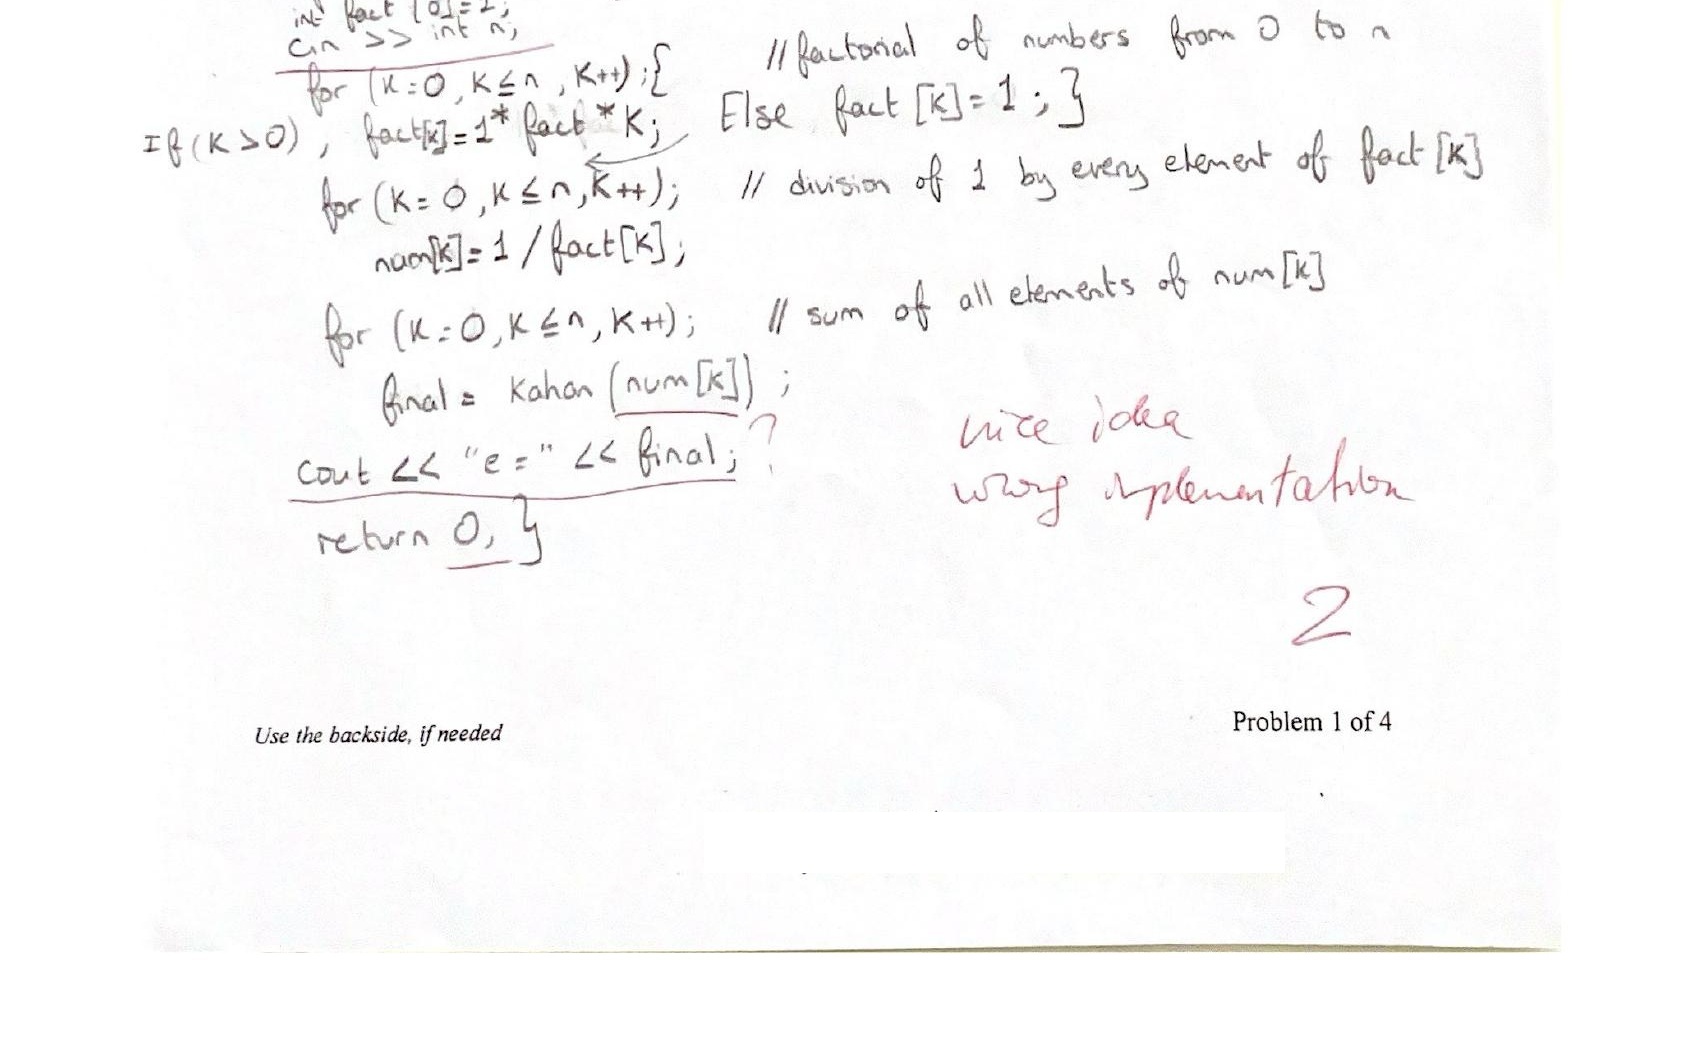 int fact [0]=1;
cin >> int n;
for (K=0, K≤n, K++);{ // factorial of numbers from 0 to n
If (K>0), fact[K]=1* fact *K; Else fact [K]=1;}
for (K=0, K≤n, K++); // division of 1 by every element of fact [K]
num[K]=1 / fact[K];
for (K=0, K≤n, K++); // sum of all elements of num [K]
final = Kahan (num[K]);
cout << "e=" << final; ?
return 0, }
nice idea
wrong implementation
2
Use the backside, if needed
Problem 1 of 4